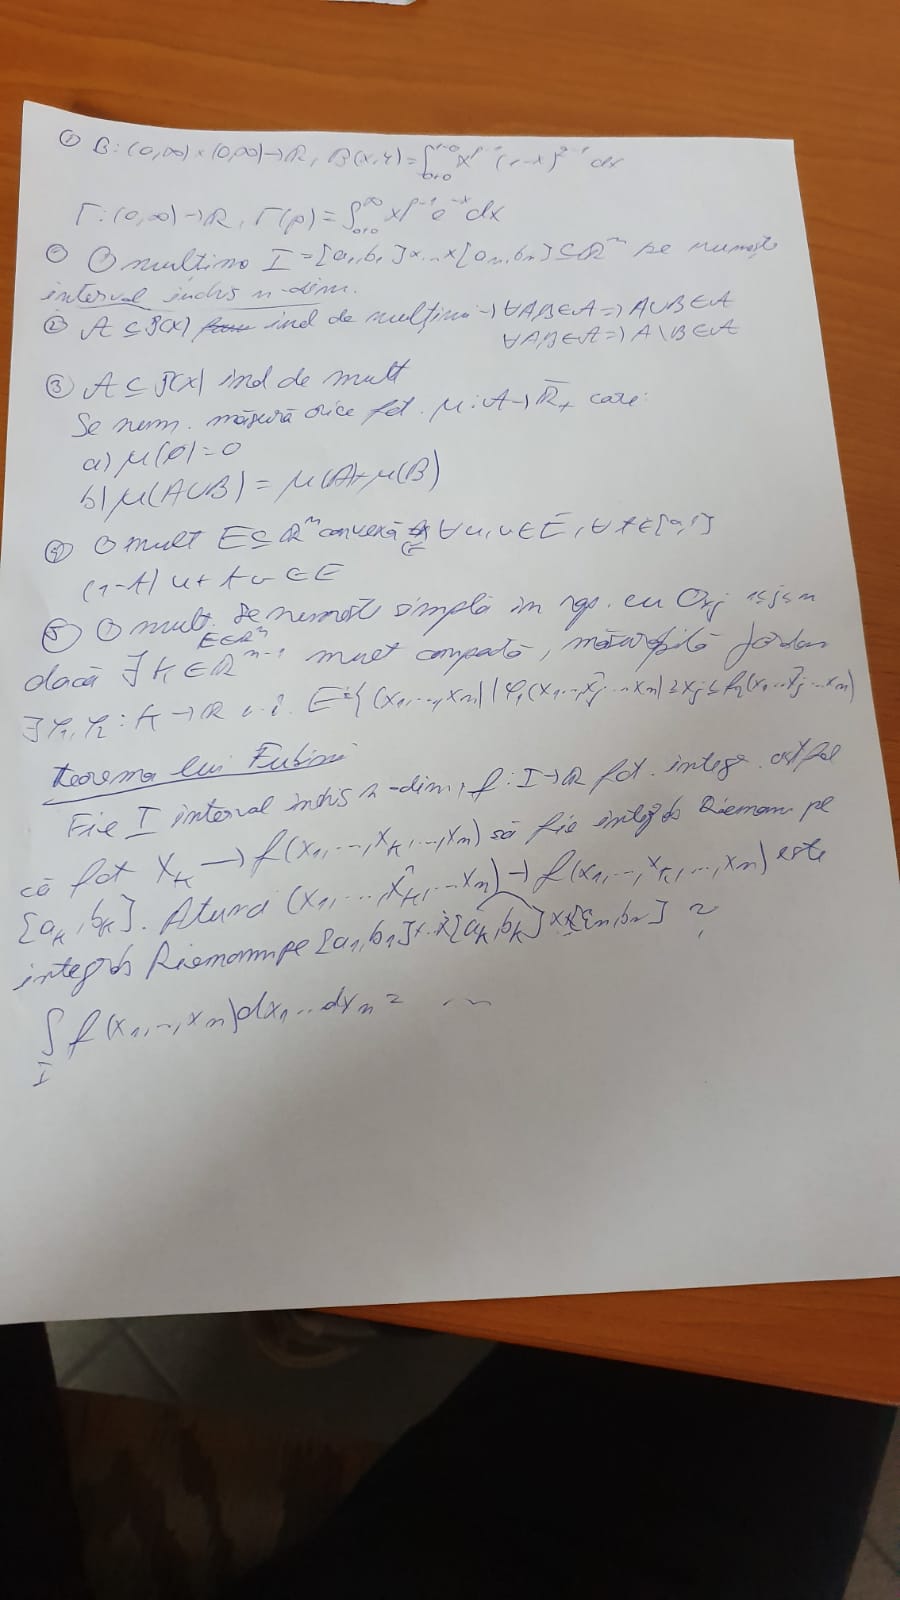 ① B: (0,∞) × (0,∞) → ℝ, B(x,y) = ∫₀₊₀¹⁻⁰ x^{p-1} (1-x)^{q-1} dx
Γ: (0,∞) → ℝ, Γ(p) = ∫₀₊₀^∞ x^{p-1} e^{-x} dx
O mulțime I = [a₁,b₁] x...x [aₙ,bₙ] ⊆ ℝⁿ se numește
interval închis n-dim.
② A ⊆ P(X) inel de mulțimi → ∀A,B∈A ⇒ A∪B∈A
∀A,B∈A ⇒ A\B∈A
③ A ⊆ P(X) inel de mult
Se num. măsură orice fct. μ: A → ℝ̄₊ care:
a) μ(∅) = 0
b) μ(A∪B) = μ(A) + μ(B)
④ O mult E ⊆ ℝⁿ convexă ∀ u,v ∈ E, ∀ t ∈ [0,1]
(1-t) u + t v ∈ E
⑤ O mult. E∈ℝⁿ se numește simplă în rap. cu Oxj 1≤j≤n
dacă ∃ K ∈ ℝⁿ⁻¹ mult compactă, măsurabilă Jordan
∃ φ₁, φ₂ : K → ℝ a.î. E = { (x₁,...,xₙ) | φ₁(x₁...x̂j...xₙ) ≤ xj ≤ φ₂(x₁...x̂j...xₙ)
Teorema lui Fubini
Fie I interval închis n-dim, f: I → ℝ fct. integr. astfel
că fct x_k → f(x₁,...,x_k,...,xₙ) să fie integrb Riemann pe
[a_k, b_k]. Atunci (x₁,...,x̂_k,...xₙ) → f(x₁,...,x_k,...,xₙ) este
integrb Riemann pe [a₁,b₁]x..x[a_k,b_k]x..x[aₙ,bₙ]
∫_I f(x₁,...,xₙ)dx₁...dxₙ =